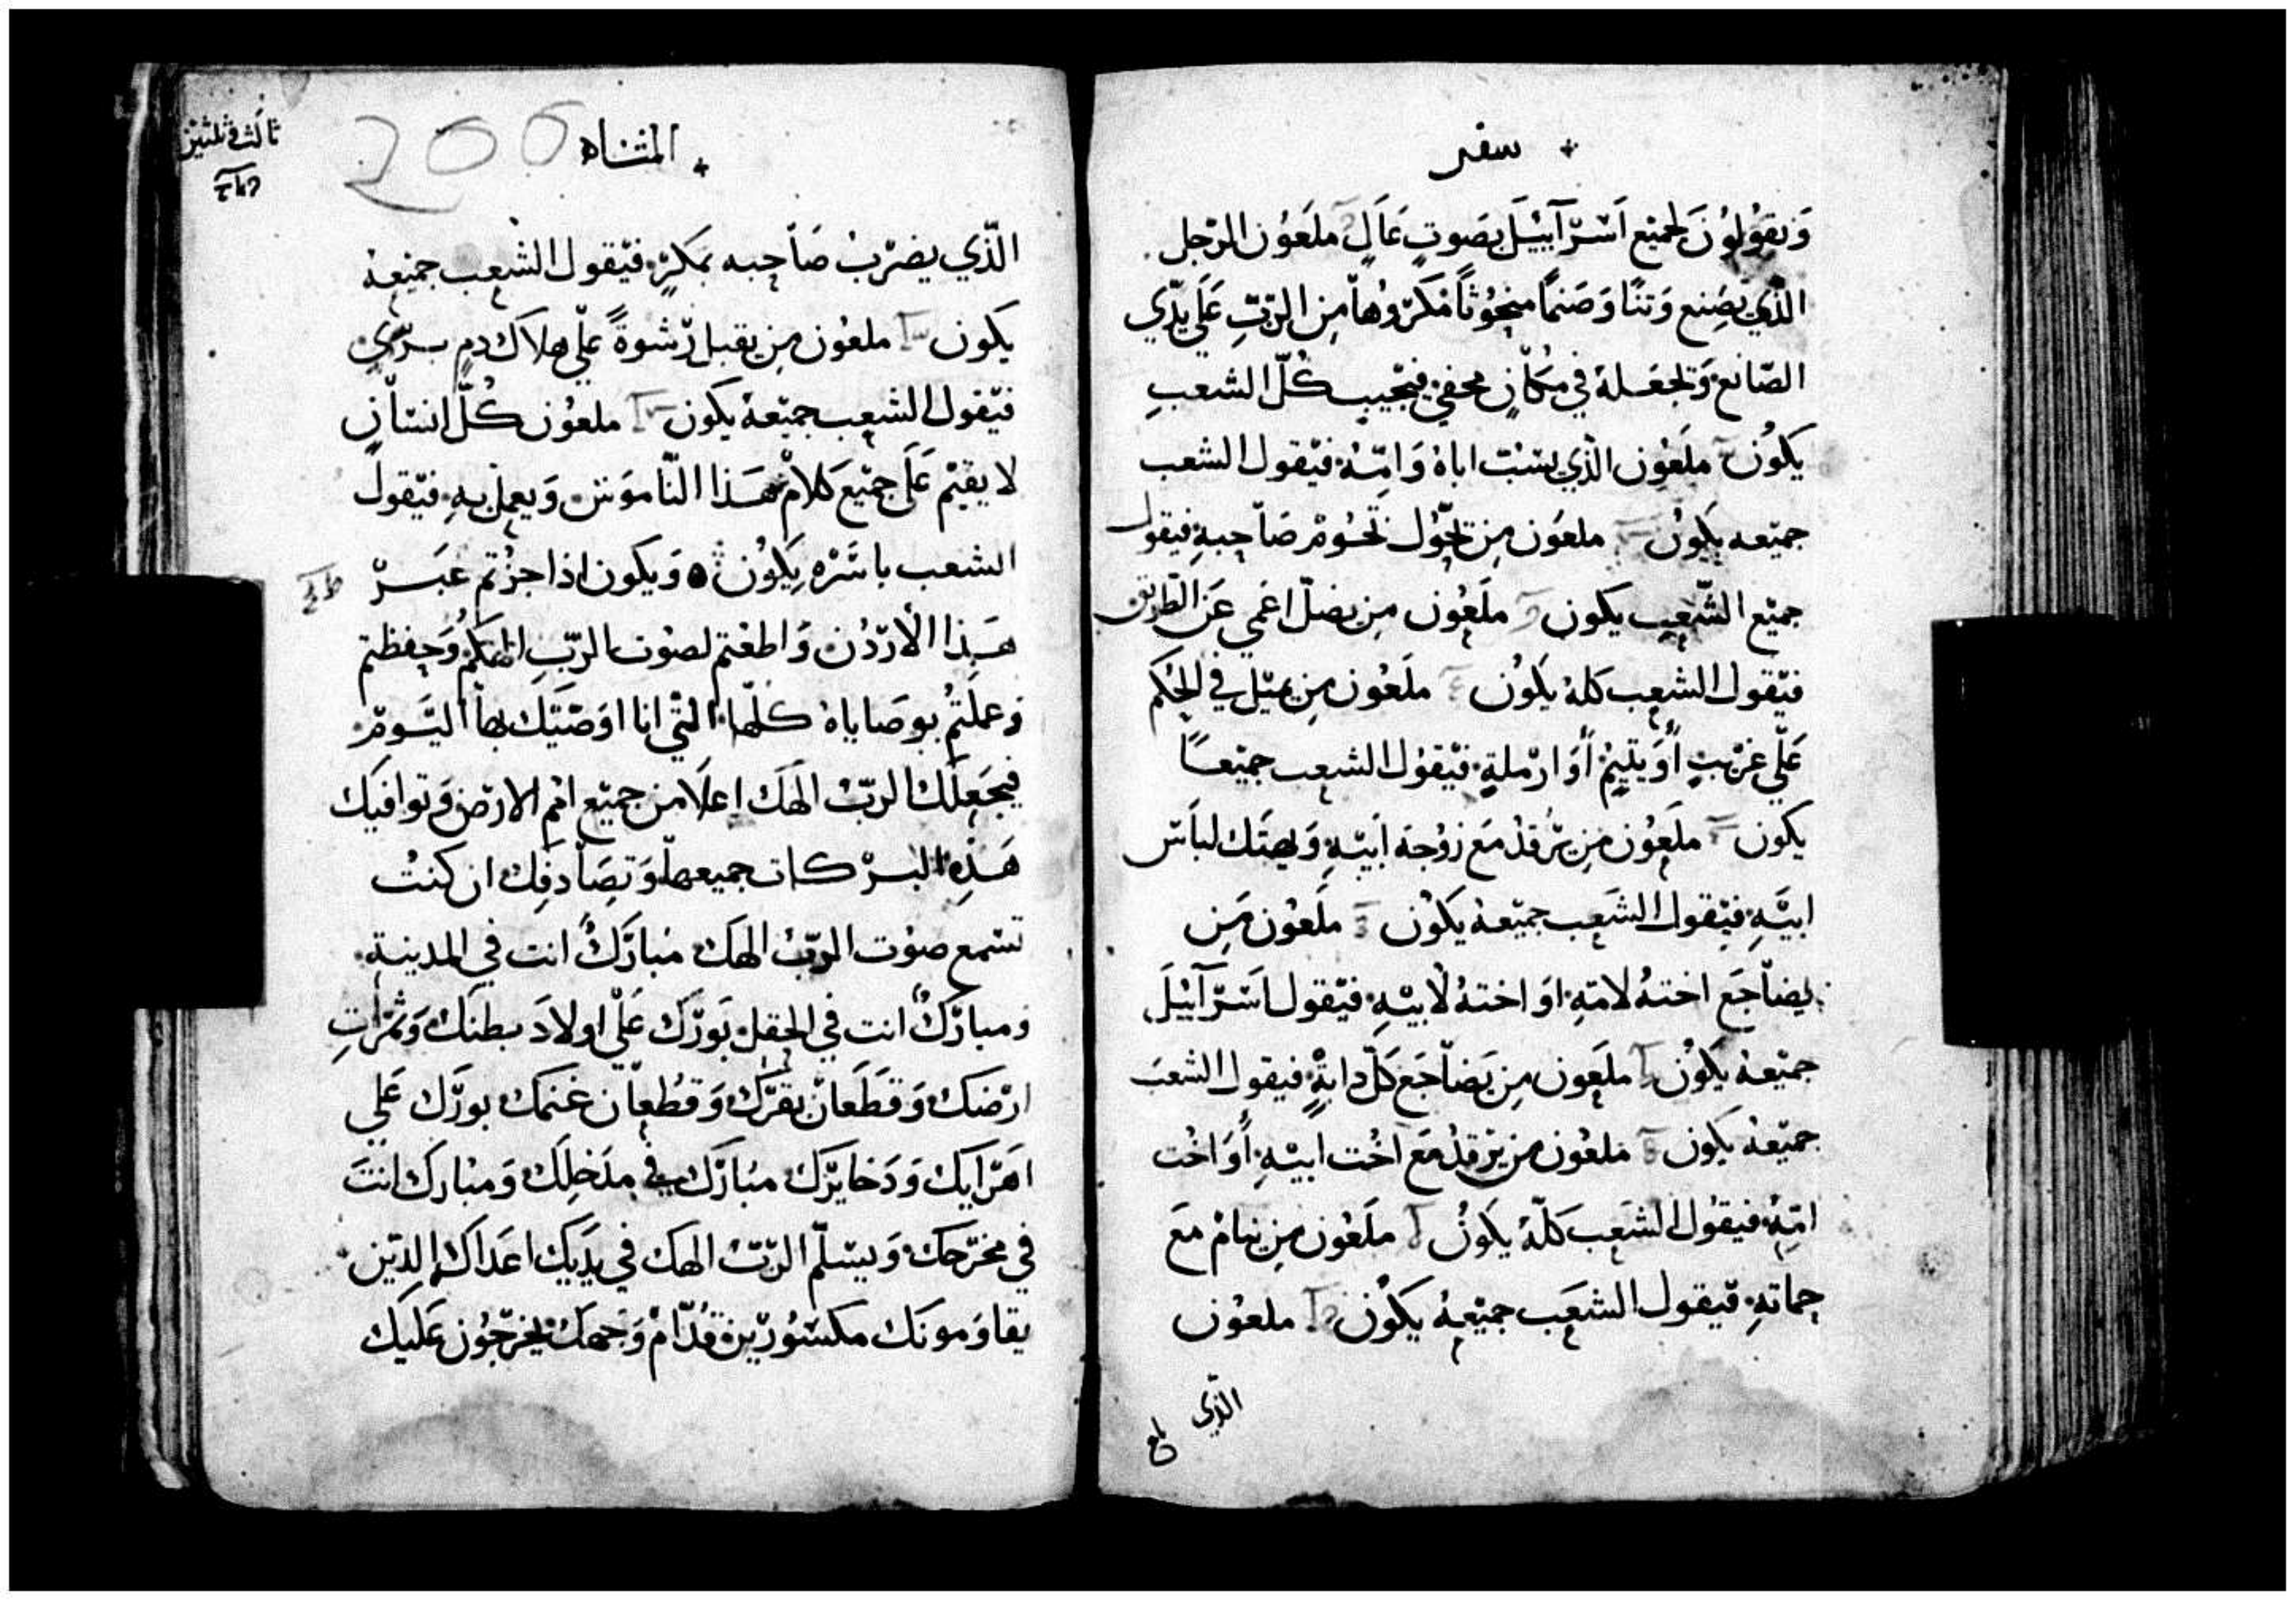 سفر
وَيقوُلوُنَ لجميْع اَسْرّآييْلَ بصَوتٍ عَالٍ ملَعوُن الرّجل
الذّي يصَنع وَتنًا وَصَنمًا منحوُتًا مَكرّوُهاً من الرّبّ عَلي يدّي
الصّانع وَتجعَلهُ في مكاْنٍ مخفيٍ فيَجْيب كُلّ الشعبِ
يكوُن ملَعوُن الذّي يسْبْ اباهُ وَامّهُ فيْقول الشعب
جميْعه يكوُن ملعوُن من يحَوّل تخوُمْ صَاْحبهِ فيقول
جميْع الشّعب يكون ملَعوُن من يضلّ اعَمي عَن الطرّيق
فيْقول الشعب كلهُ يكوُن ملَعوُن من يميْل في الحُكم
عَلّي غرْيبٍ أوَيتيْمٍ أوَ ارْملةٍ فيْقوُل الشعب جميْعاً
يكون ملَعوُن من يرْقدْ مَع زوُجة اَبيْهِ وَيهتَك لباَسْ
ابيْهِ فيْقول الشَعب جميْعهُ يكوُن ملَعوُن مَن
يضاْجَع اختهُ لامّهِ اوَ اختهُ لاُبيْهِ فيْقول اَسْرّآييْلَ
جميْعهُ يكوُن ملَعون من يَضاْجَع كلّ دابةٍ فيقول الشعَب
جميْعهُ يكون ملعوُن من يرْقدْ مَع اخُت ابيْهِ أوَ اخُت
امّهِ فيقوُل الشَعب كلّهُ يكَونُ ملَعوُن من ينامْ مَعَ
حماتهِ فيْقول الشعَب جميْعهُ يكوُن ملعوُن
الذّي
المثناه
200
ثالث وثلثين
الذّي يضرْبْ صَاْحبه بمَكرٍ فيْقول الشعب جميْعهُ
يكون ملعوُن من يقبل رّشوةً علّي هلاك دمٍ برّيٍ
فيْقول الشعب جميْعهُ يكون ملعوُن كُلّ انسْاْنٍ
لا يقيْم عَلَي جميْع كلامْ هَذا النّاموَسْ وَيعمل بهِ فيْقول
الشعب باسَرْه يكوُن وَيكون اذا جزُتم عَبَرْ
هَذا الأردُن وَاطعْتم لصوُت الرّبِ الهكمُ وَحفظتم
وَعملتمُ بوصَاياهُ كلّها التْي انا اوَصَيْتك بهاْ اليَومْ
فيجَعلَك الربّ الَهَك اعلَا من جميْع اممْ الارْض وَتوافيَك
هَذهِ البرْكات جميعهاْ وَتصَاْدفك ان كنتُ
تسْمع صوُت الربْ الهَك مُبارَكٌ انت في المدينة
وَمبارّكٌ انت في الحقل بَورّك عَلّي اولادَ بطنك وَثمرْاتِ
ارْضَك وَقطَعَانْ بقرّك وَقطُعاْن غنمك بورّك عَلي
اهَرْايك وَدَخايرّك مبُارَّك في مدَخلَك وَمبُارك انتَ
في مخرّجك وَيسْلّم الرّبّ الهَك في يدَيَك اعَداك الذيّن
يقاوَمونَك مكسْوُرّين قدُّامْ وَجهَك يخرّجوُن عَليَك